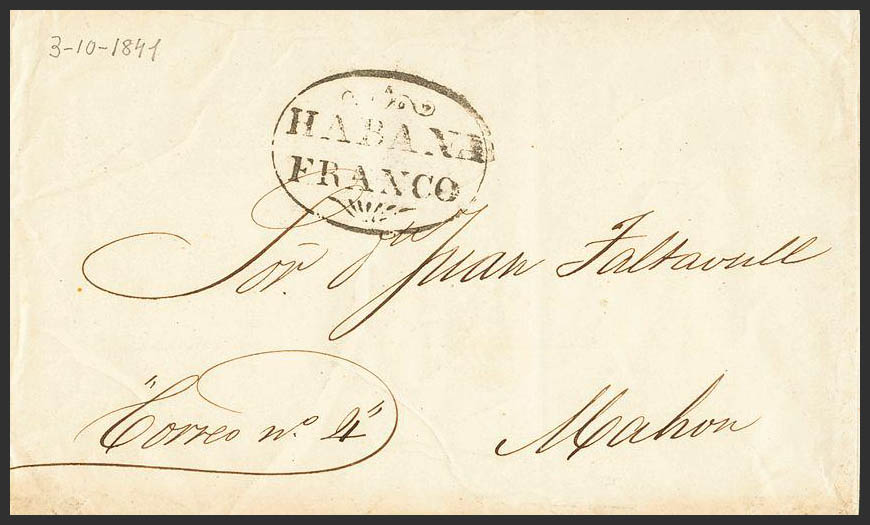 3-10-1841
HABANA
FRANCO
Sor dn Juan Taltavull
"Correo no. 4"
Mahon